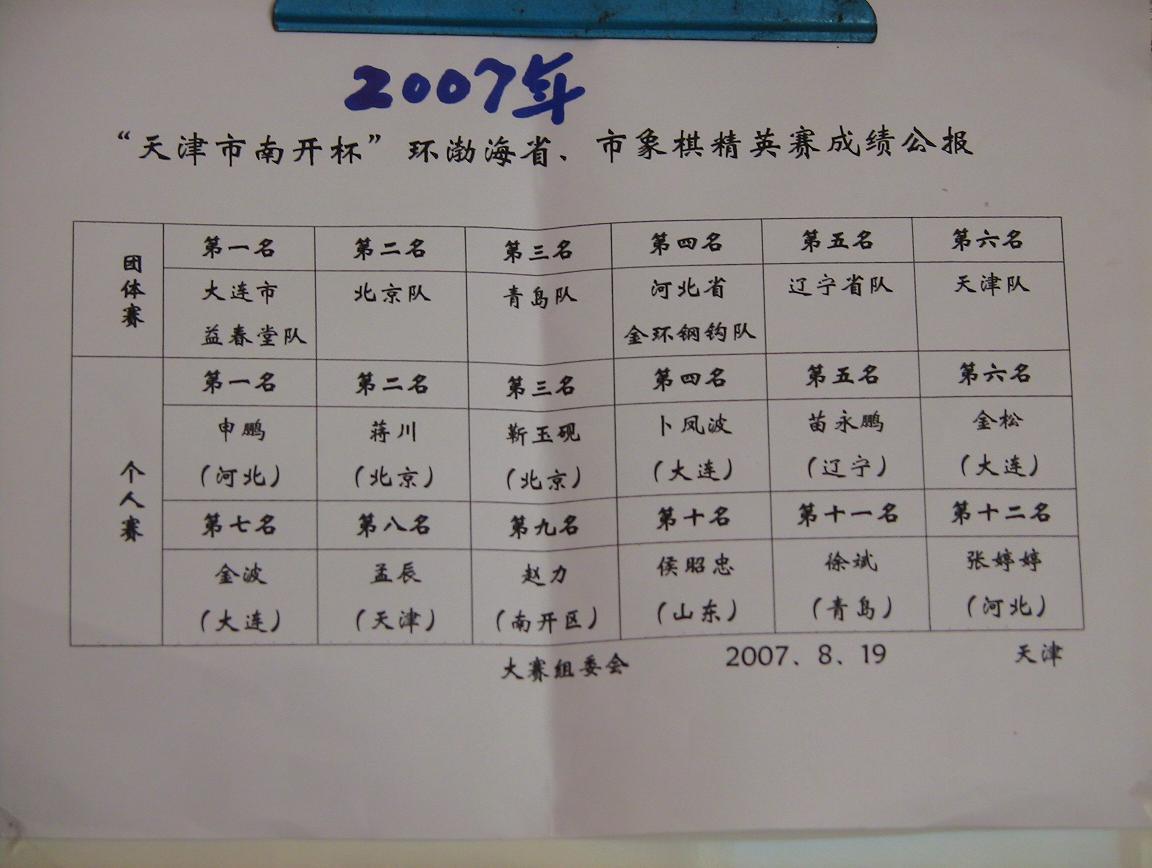 2007年
“天津市南开杯”环渤海省、市象棋精英赛成绩公报
团体赛
第一名 第二名 第三名 第四名 第五名 第六名
大连市 北京队 青岛队 河北省 辽宁省队 天津队
益春堂队 金环钢钩队
个人赛
第一名 第二名 第三名 第四名 第五名 第六名
申鹏 蒋川 靳玉砚 卜凤波 苗永鹏 金松
(河北) (北京) (北京) (大连) (辽宁) (大连)
第七名 第八名 第九名 第十名 第十一名 第十二名
金波 孟辰 赵力 侯昭忠 徐斌 张婷婷
(大连) (天津) (南开区) (山东) (青岛) (河北)
大赛组委会 2007、8、19 天津